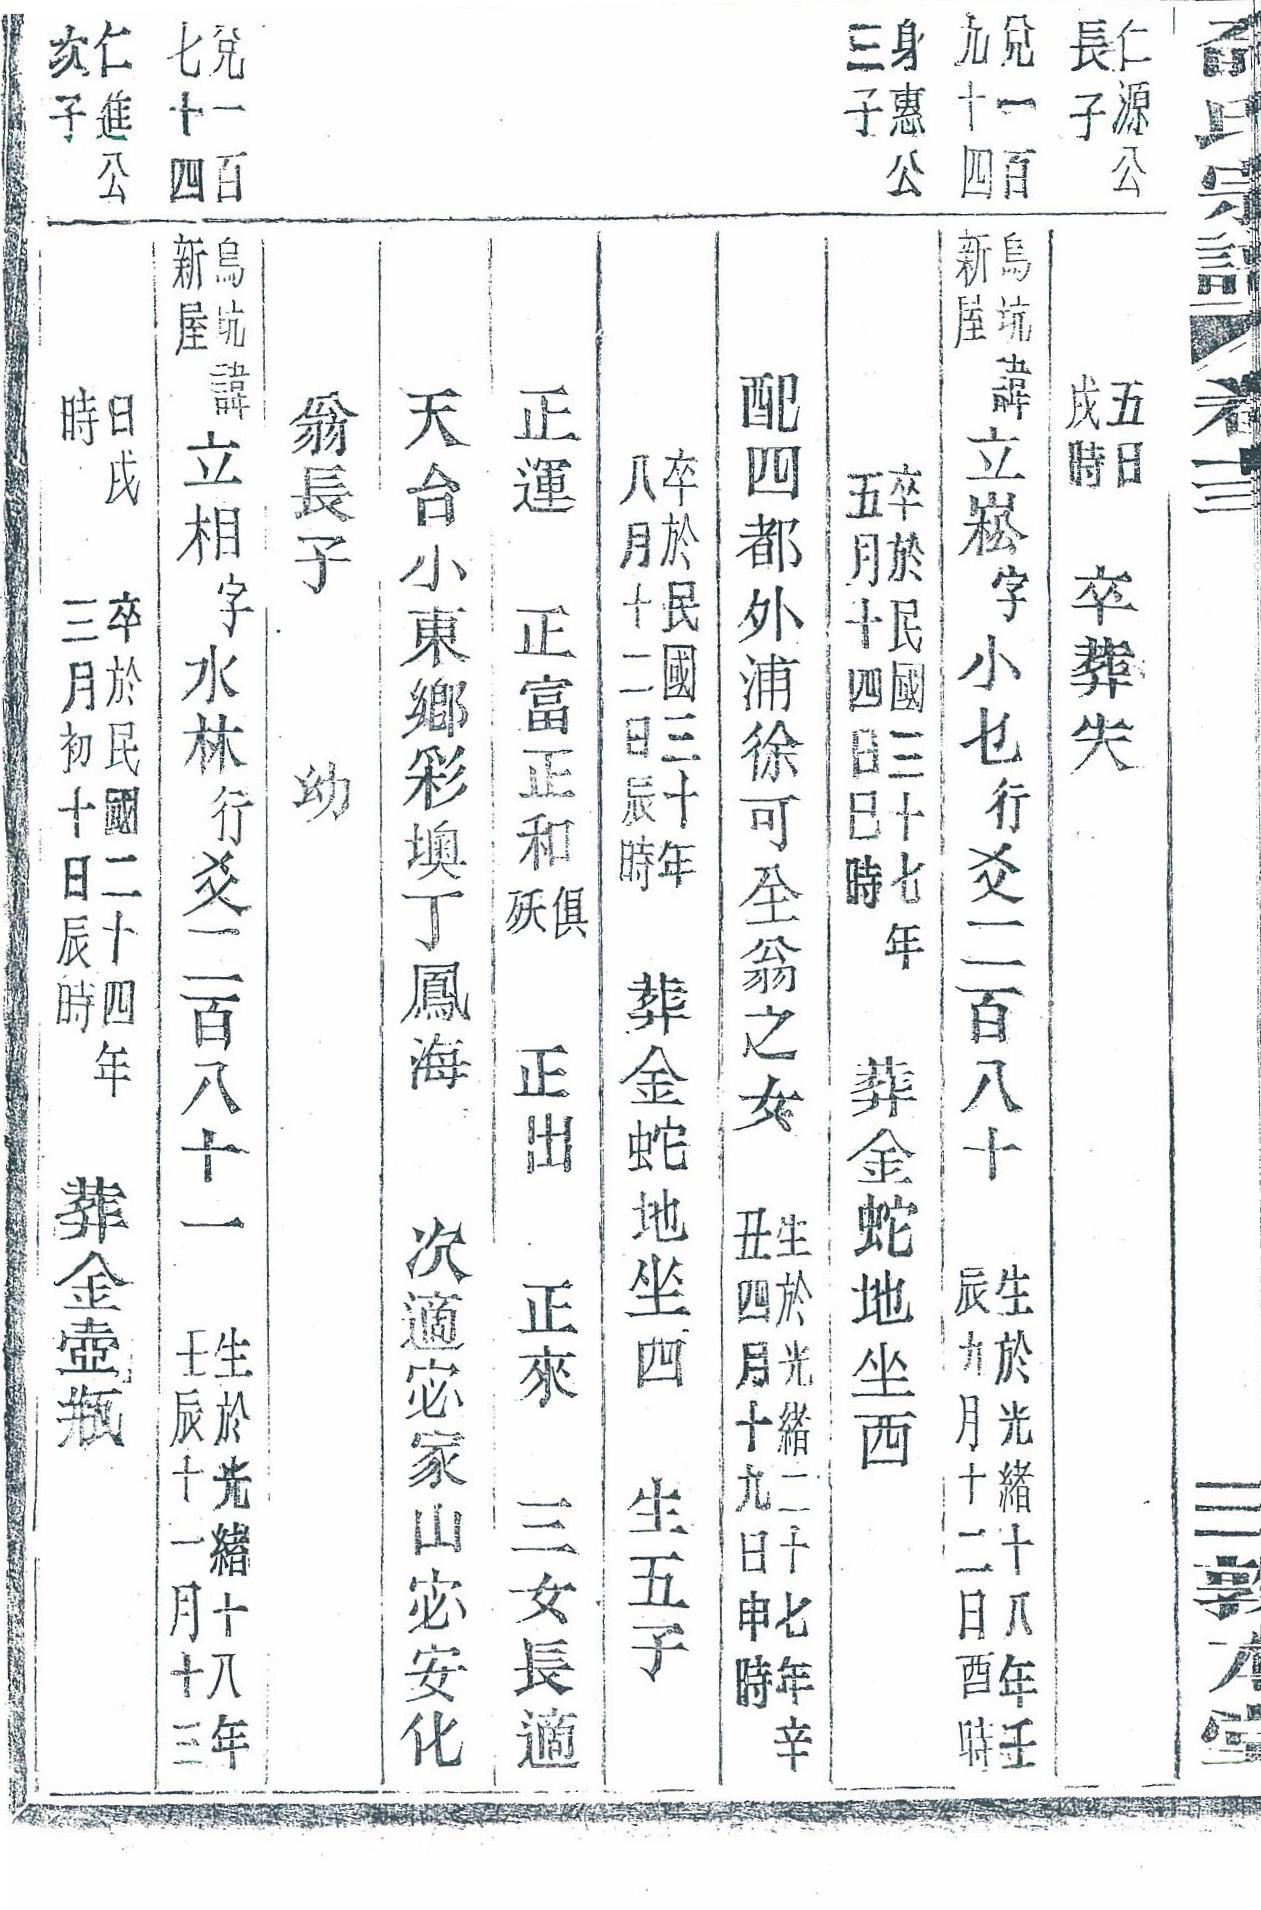 氏宗譜 卷三 三 敦本堂
仁源公
長子
五日
戌時
卒葬失
兌一百
九十四
烏坑
新屋
諱立崧字小乜行爻二百八十
生於光緒十八年壬
辰九月十二日酉時
身惠公
三子
卒於民國三十七年
五月十四日巳時
葬金蛇地坐西
配四都外浦徐可全翁之女
生於光緒二十七年辛
丑四月十九日申時
卒於民國三十年
八月十二日辰時
葬金蛇地坐西
生五子
正運 正富 正和
俱
殀
正出 正來 三女長適
天台小東鄉彩墺丁鳳海 次適宓家山宓安化
翁長子 幼
兌一百
七十四
烏坑
新屋
諱立相字水林行爻二百八十一
生於光緒十八年
壬辰十一月十三
仁進公
次子
日戌
時
卒於民國二十四年
三月初十日辰時
葬金壺瓶